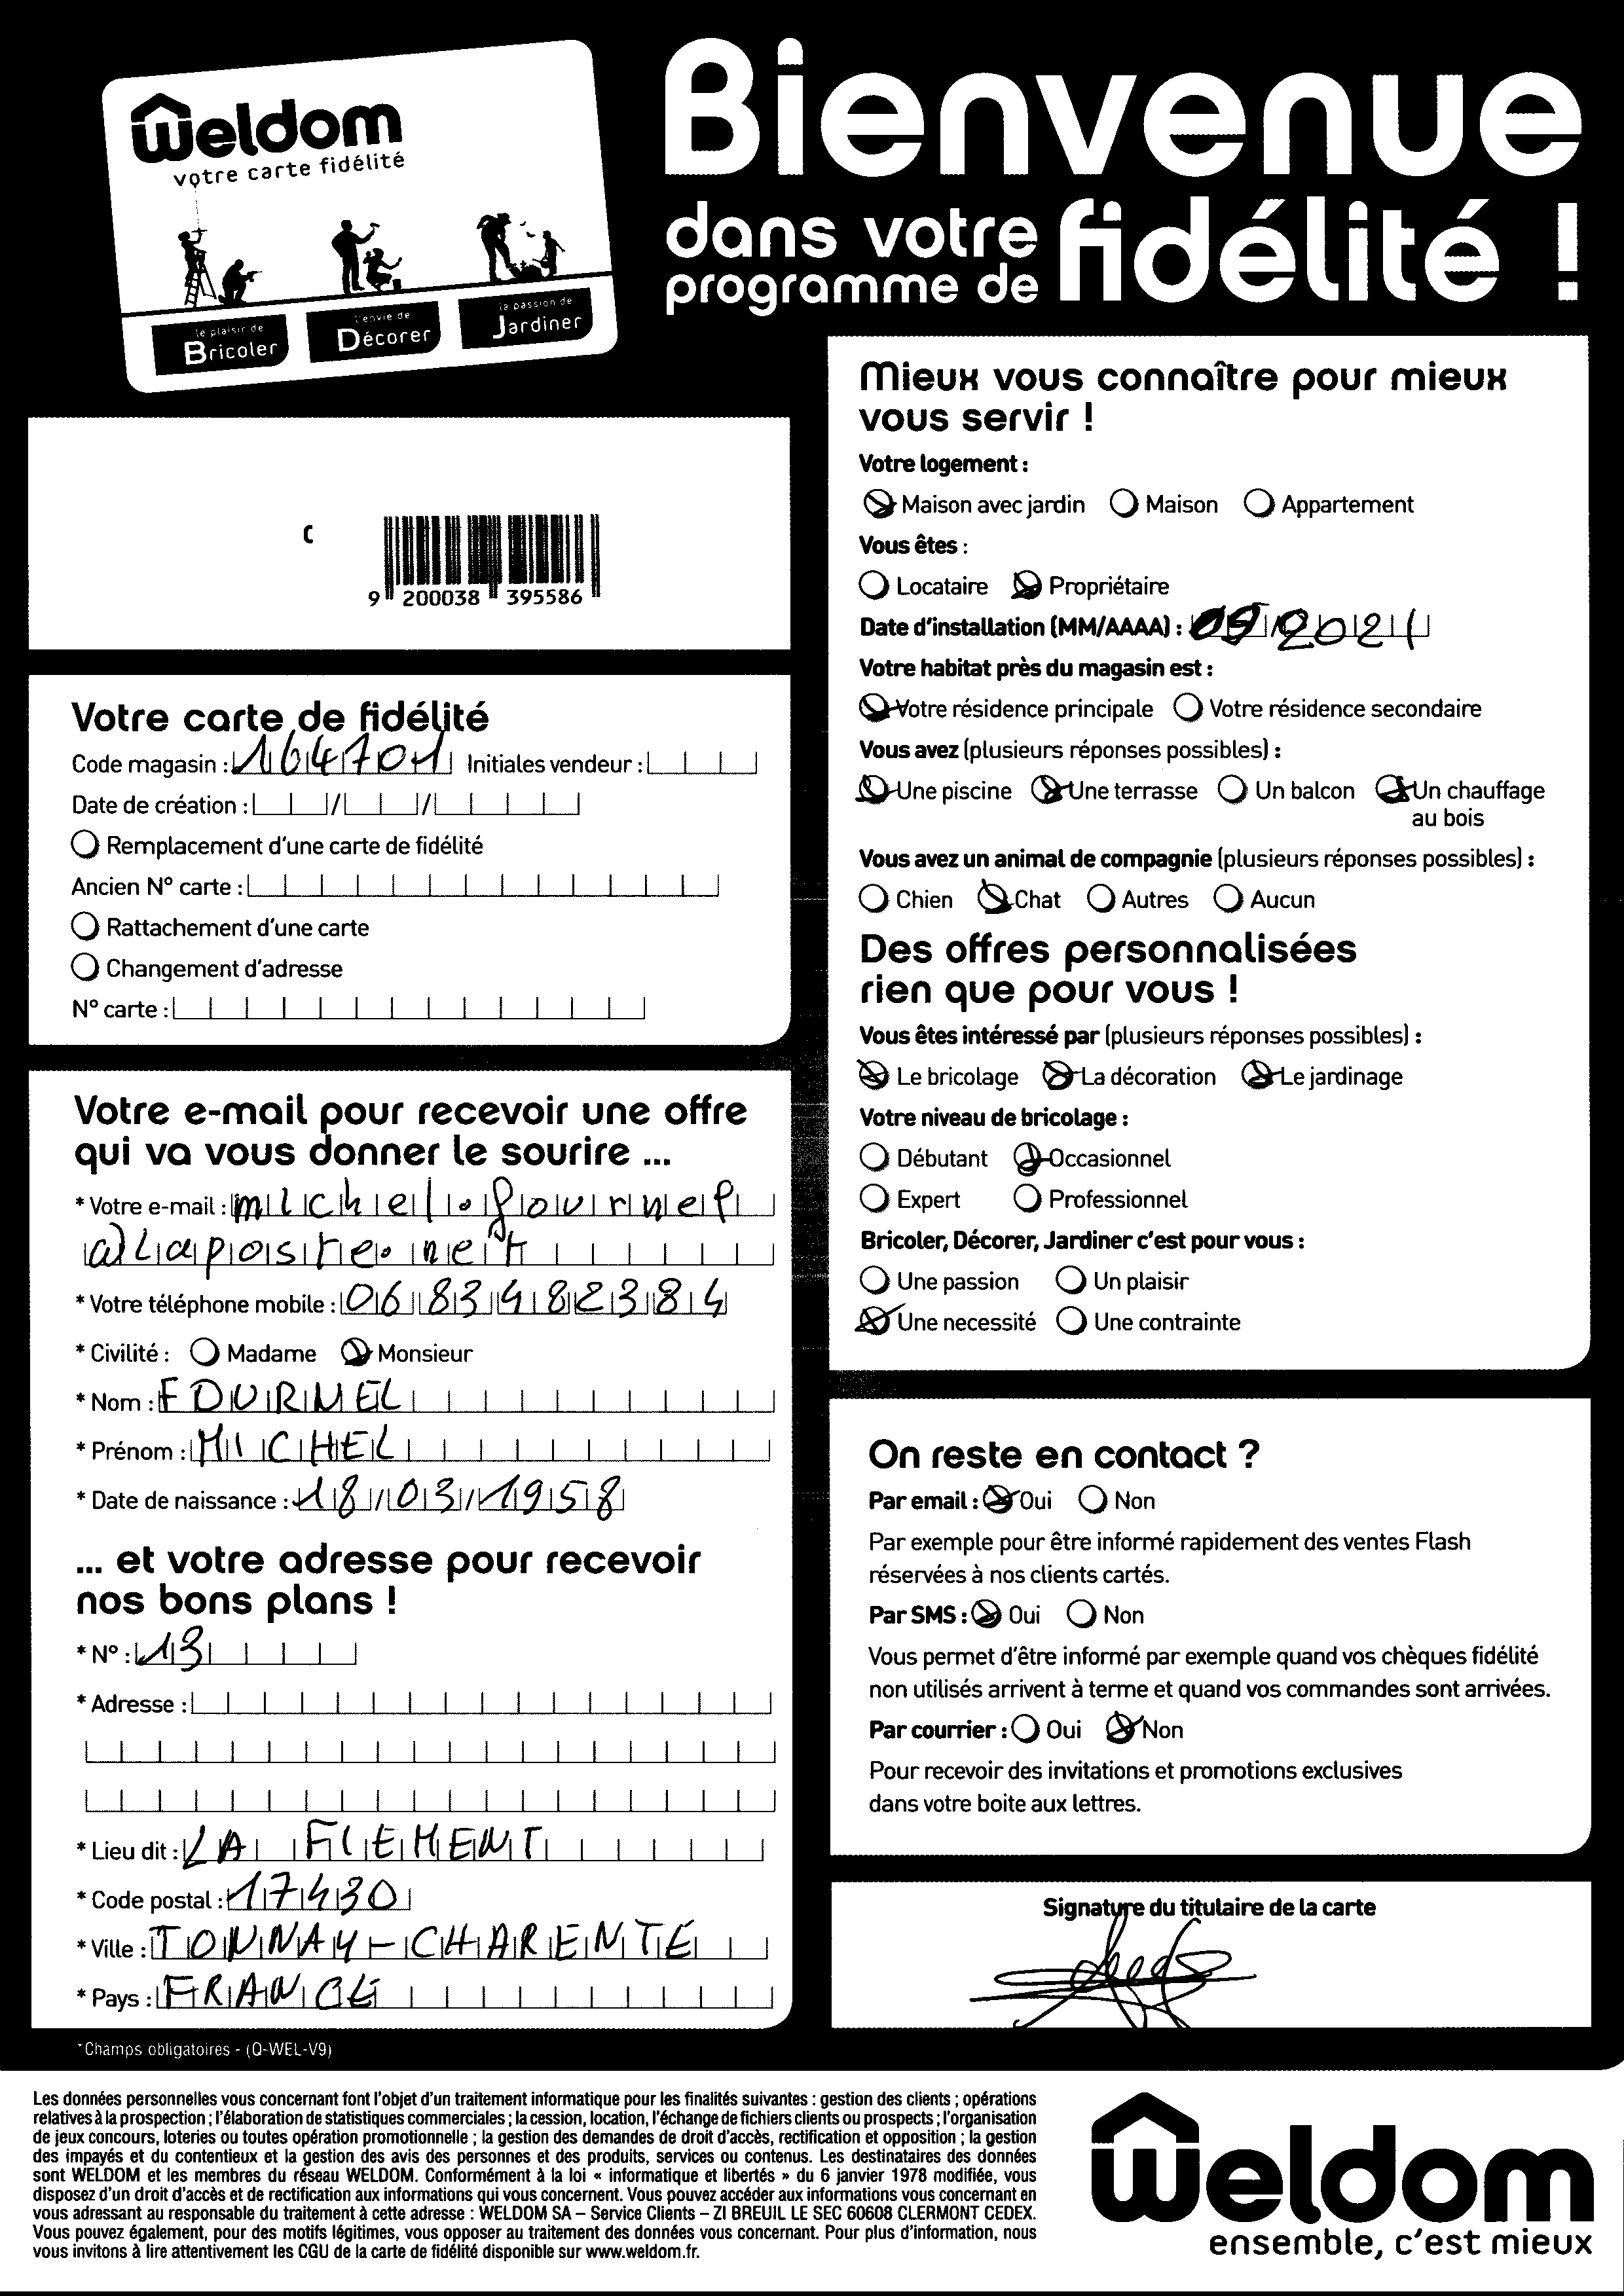 Weldom
votre carte fidélité
le plaisir de
Bricoler
l'envie de
Décorer
la passion de
Jardiner
Bienvenue
dans votre
programme de fidélité !
C
9 200038 395586
Votre carte de fidélité
Code magasin : 164701 Initiales vendeur :
Date de création : / /
Remplacement d'une carte de fidélité
Ancien N° carte :
Rattachement d'une carte
Changement d'adresse
N° carte :
Votre e-mail pour recevoir une offre
qui va vous donner le sourire ...
* Votre e-mail : michel.fournel
@laposte.net
* Votre téléphone mobile : 0683482384
* Civilité : Madame Monsieur
* Nom : FOURNEL
* Prénom : MICHEL
* Date de naissance : 18/03/1958
... et votre adresse pour recevoir
nos bons plans !
* N° : 13
* Adresse :
* Lieu dit : LA FLEMENT
* Code postal : 17430
* Ville : TONNAY-CHARENTE
* Pays : FRANCE
*Champs obligatoires - (Q-WEL-V9)
Mieux vous connaître pour mieux
vous servir !
Votre logement :
Maison avec jardin Maison Appartement
Vous êtes :
Locataire Propriétaire
Date d'installation (MM/AAAA) : 09/2021
Votre habitat près du magasin est :
Votre résidence principale Votre résidence secondaire
Vous avez (plusieurs réponses possibles) :
Une piscine Une terrasse Un balcon Un chauffage
au bois
Vous avez un animal de compagnie (plusieurs réponses possibles) :
Chien Chat Autres Aucun
Des offres personnalisées
rien que pour vous !
Vous êtes intéressé par (plusieurs réponses possibles) :
Le bricolage La décoration Le jardinage
Votre niveau de bricolage :
Débutant Occasionnel
Expert Professionnel
Bricoler, Décorer, Jardiner c'est pour vous :
Une passion Un plaisir
Une necessité Une contrainte
On reste en contact ?
Par email : Oui Non
Par exemple pour être informé rapidement des ventes Flash
réservées à nos clients cartés.
Par SMS : Oui Non
Vous permet d'être informé par exemple quand vos chèques fidélité
non utilisés arrivent à terme et quand vos commandes sont arrivées.
Par courrier : Oui Non
Pour recevoir des invitations et promotions exclusives
dans votre boite aux lettres.
Signature du titulaire de la carte
Les données personnelles vous concernant font l'objet d'un traitement informatique pour les finalités suivantes : gestion des clients ; opérations
relatives à la prospection ; l'élaboration de statistiques commerciales ; la cession, location, l'échange de fichiers clients ou prospects ; l'organisation
de jeux concours, loteries ou toutes opération promotionnelle ; la gestion des demandes de droit d'accès, rectification et opposition ; la gestion
des impayés et du contentieux et la gestion des avis des personnes et des produits, services ou contenus. Les destinataires des données
sont WELDOM et les membres du réseau WELDOM. Conformément à la loi « informatique et libertés » du 6 janvier 1978 modifiée, vous
disposez d'un droit d'accès et de rectification aux informations qui vous concernent. Vous pouvez accéder aux informations vous concernant en
vous adressant au responsable du traitement à cette adresse : WELDOM SA – Service Clients – ZI BREUIL LE SEC 60608 CLERMONT CEDEX.
Vous pouvez également, pour des motifs légitimes, vous opposer au traitement des données vous concernant. Pour plus d'information, nous
vous invitons à lire attentivement les CGU de la carte de fidélité disponible sur www.weldom.fr.
Weldom
ensemble, c'est mieux